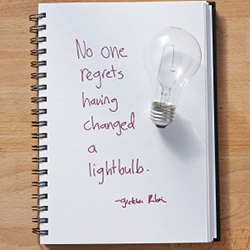 No one
regrets
having
changed
a
lightbulb.
-Gretchen Rubin